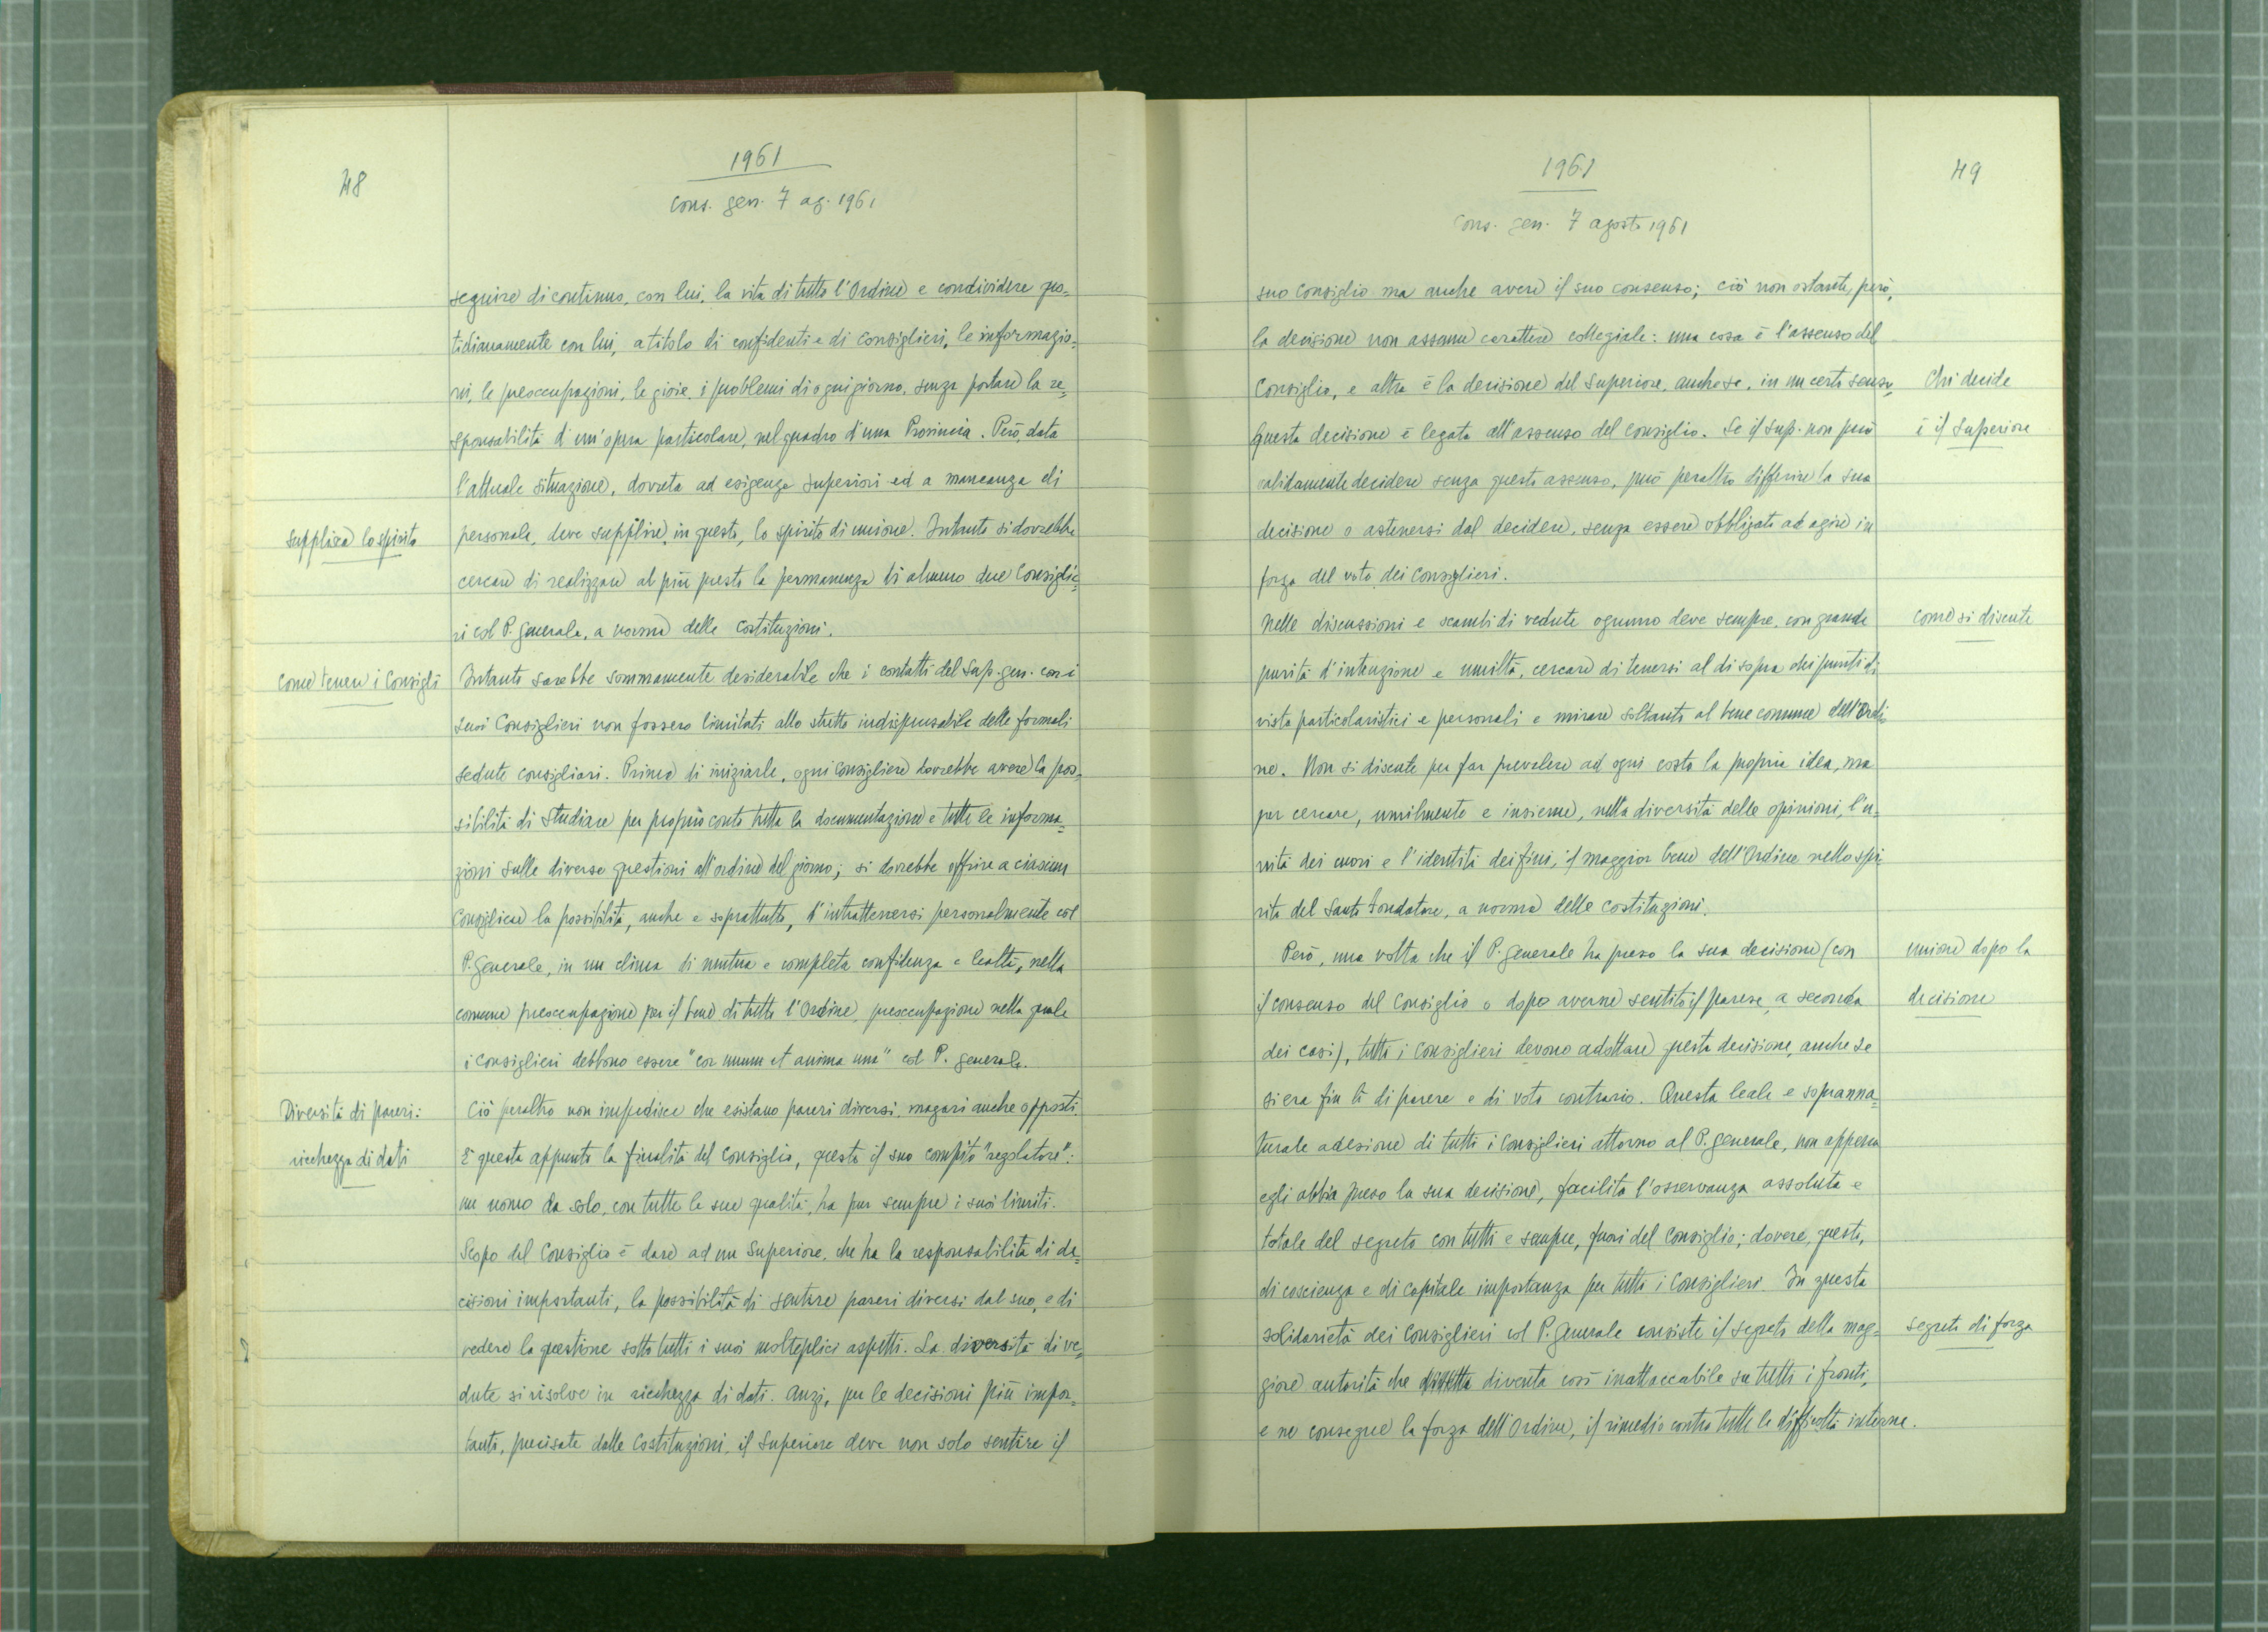 48
1961
Cons. gen. 7 ag. 1961
seguire di continuo, con lui, la vita di tutto l'Ordine e condividere quo=
tidianamente con lui, a titolo di confidenti e di consiglieri, le informazio=
ni, le preoccupazioni, le gioie, i problemi di ogni giorno, senza portare la re=
sponsabilità d'un'opera particolare, nel quadro d'una Provincia. Però, data
l'attuale situazione, dovuta ad esigenze superiori ed a mancanza di
supplisca lo spirito
personale, deve supplire, in questo, lo spirito di unione. Intanto si dovrebbe
cercare di realizzare al più presto la permanenza di almeno due Consiglie=
ri col P. Generale, a norma delle Costituzioni.
Come tenere i Consigli
Intanto sarebbe sommamente desiderabile che i contatti del Sup. gen. con i
suoi Consiglieri non fossero limitati allo stretto indispensabile delle formali
sedute consigliari. Prima di iniziarle, ogni Consigliere dovrebbe avere la pos=
sibilità di studiare per proprio conto tutta la documentazione e tutte le informa=
zioni sulle diverse questioni all'ordine del giorno; si dovrebbe offrire a ciascun
Consigliere la possibilità, anche e soprattutto, d'intrattenersi personalmente col
P. Generale, in un clima di mutua e completa confidenza e lealtà, nella
comune preoccupazione per il bene di tutto l'Ordine, preoccupazione nella quale
i consiglieri debbono essere "cor unum et anima una" col P. Generale.
Diversità di pareri:
Ciò peraltro non impedisce che esistano pareri diversi, magari anche opposti.
ricchezza di dati
È questa appunto la finalità del Consiglio, questo il suo compito "regolatore":
un uomo da solo, con tutte le sue qualità, ha pur sempre i suoi limiti.
Scopo del Consiglio è dare ad un Superiore, che ha la responsabilità di de=
cisioni importanti, la possibilità di sentire pareri diversi dal suo, e di
vedere la questione sotto tutti i suoi molteplici aspetti. La diversità di ve=
dute si risolve in ricchezza di dati. Anzi, per le decisioni più impor=
tanti, precisate dalle Costituzioni, il Superiore deve non solo sentire il
1961
49
Cons. gen. 7 agosto 1961
suo Consiglio ma anche avere il suo consenso; ciò non ostante, però,
la decisione non assume carattere collegiale: una cosa è l'assenso del
Consiglio, e altra è la decisione del Superiore, anche se, in un certo senso,
Chi decide
questa decisione è legata all'assenso del Consiglio. Se il Sup. non può
è il Superiore
validamente decidere senza questo assenso, può peraltro differire la sua
decisione o astenersi dal decidere, senza essere obbligato ad agire in
forza del voto dei Consiglieri.
Nelle discussioni e scambi di vedute ognuno deve sempre, con grande
come si discute
purità d'intenzione e umiltà, cercare di tenersi al di sopra dei punti di
vista particolaristici e personali e mirare soltanto al bene comune dell'Ordi
ne. Non si discute per far prevalere ad ogni costo la propria idea, ma
per cercare, umilmente e insieme, nella diversità delle opinioni, l'u=
nità dei cuori e l'identità dei fini, il maggior bene dell'Ordine nello spi
rito del Santo Fondatore, a norma delle Costituzioni.
Però, una volta che il P. Generale ha preso la sua decisione (con
unione dopo la
il consenso del Consiglio o dopo averne sentito il parere, a seconda
decisione
dei casi), tutti i Consiglieri devono adottare questa decisione, anche se
si era fin lì di parere e di voto contrario. Questa leale e sopranna=
turale adesione di tutti i Consiglieri attorno al P. Generale, non appena
egli abbia preso la sua decisione, facilita l'osservanza assoluta e
totale del segreto con tutti e sempre, fuori del Consiglio; dovere, questo,
di coscienza e di capitale importanza per tutti i Consiglieri. In questa
solidarietà dei Consiglieri col P. Generale consiste il segreto della mag=
segreto di forza
giore autorità che diventa così inattaccabile su tutti i fronti,
e ne consegue la forza dell'Ordine, il rimedio contro tutte le difficoltà interne.